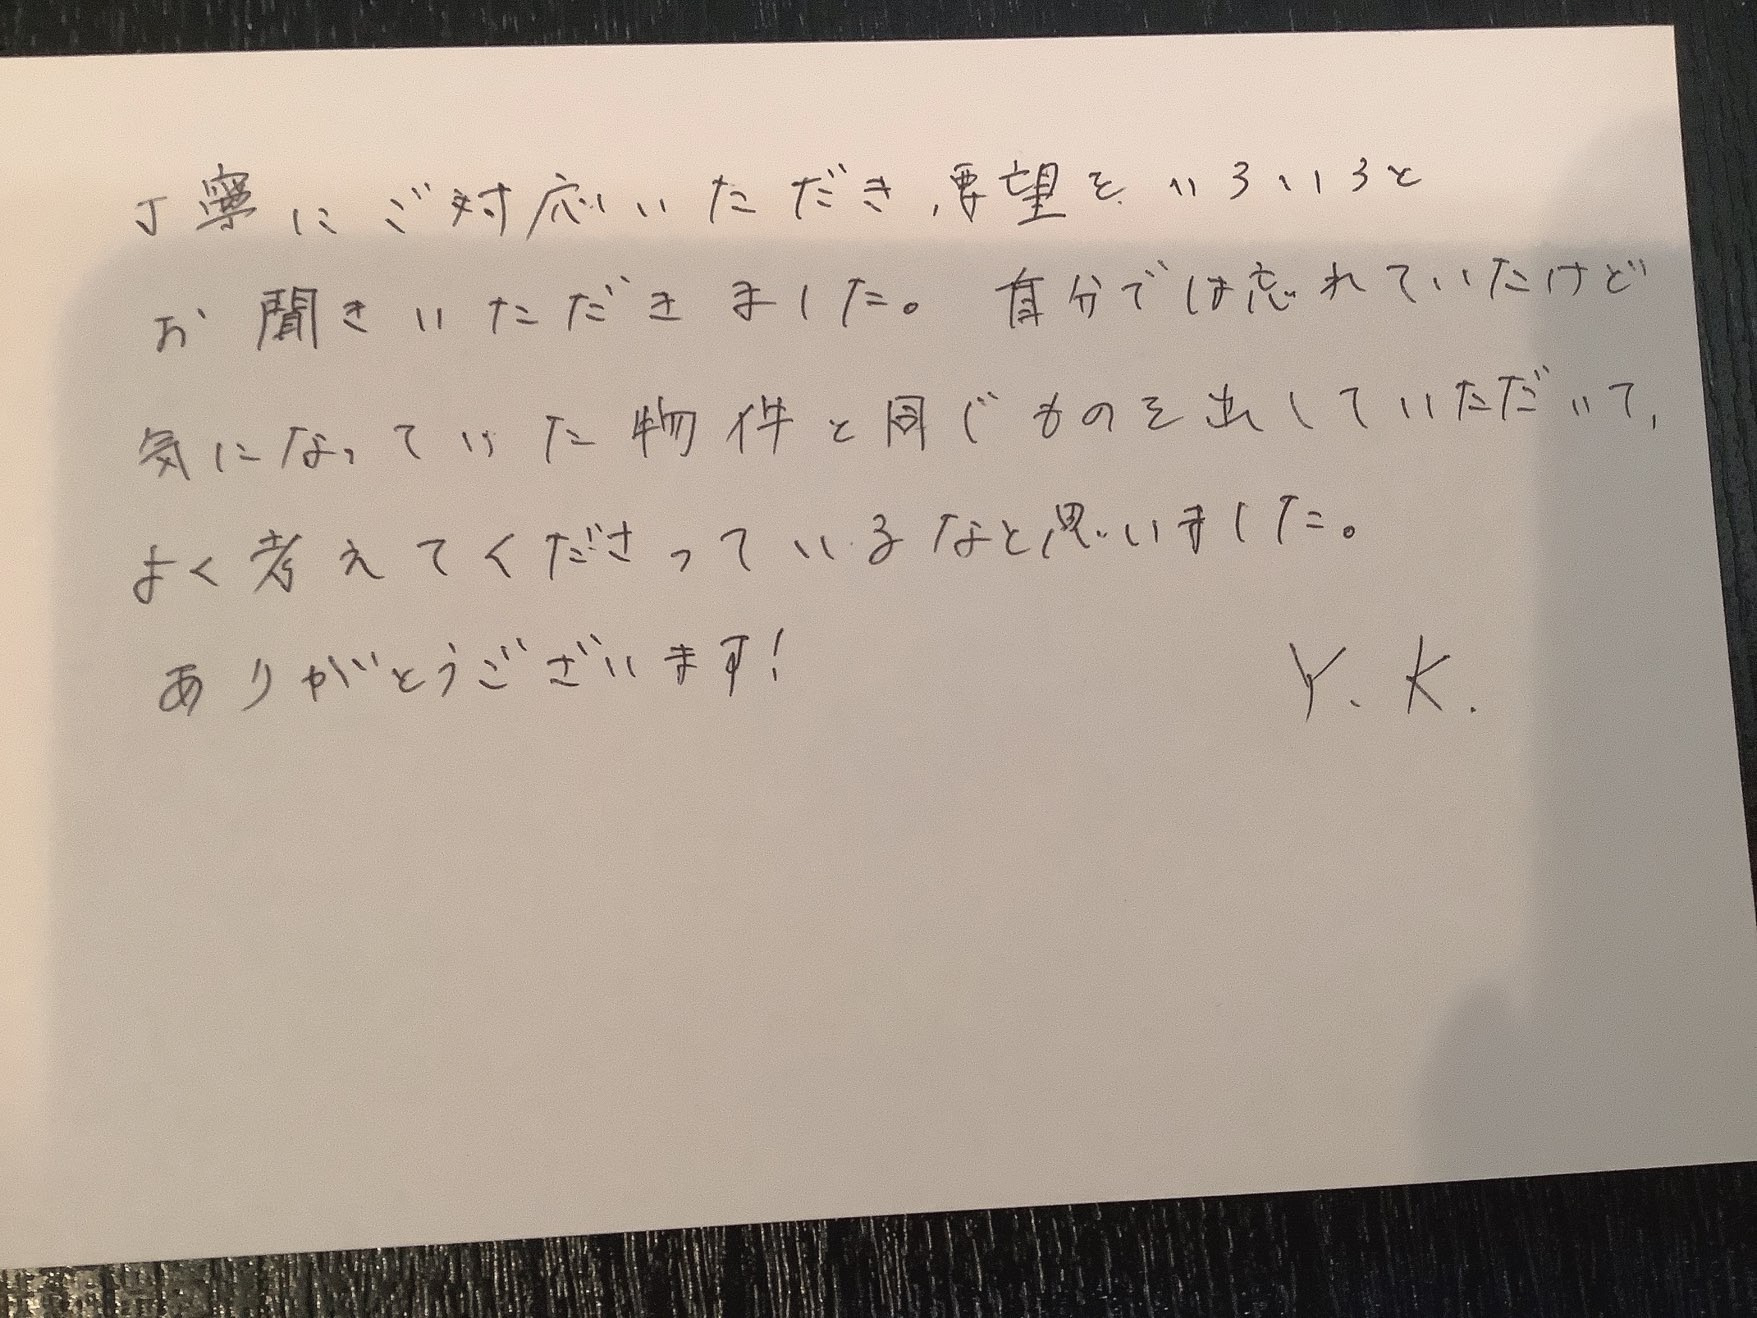 丁寧にご対応いただき、要望をいろいろと
お聞きいただきました。自分では忘れていたけど
気になっていた物件と同じものを出していただいて、
よく考えてくださっているなと思いました。
ありがとうございます!
Y.K.